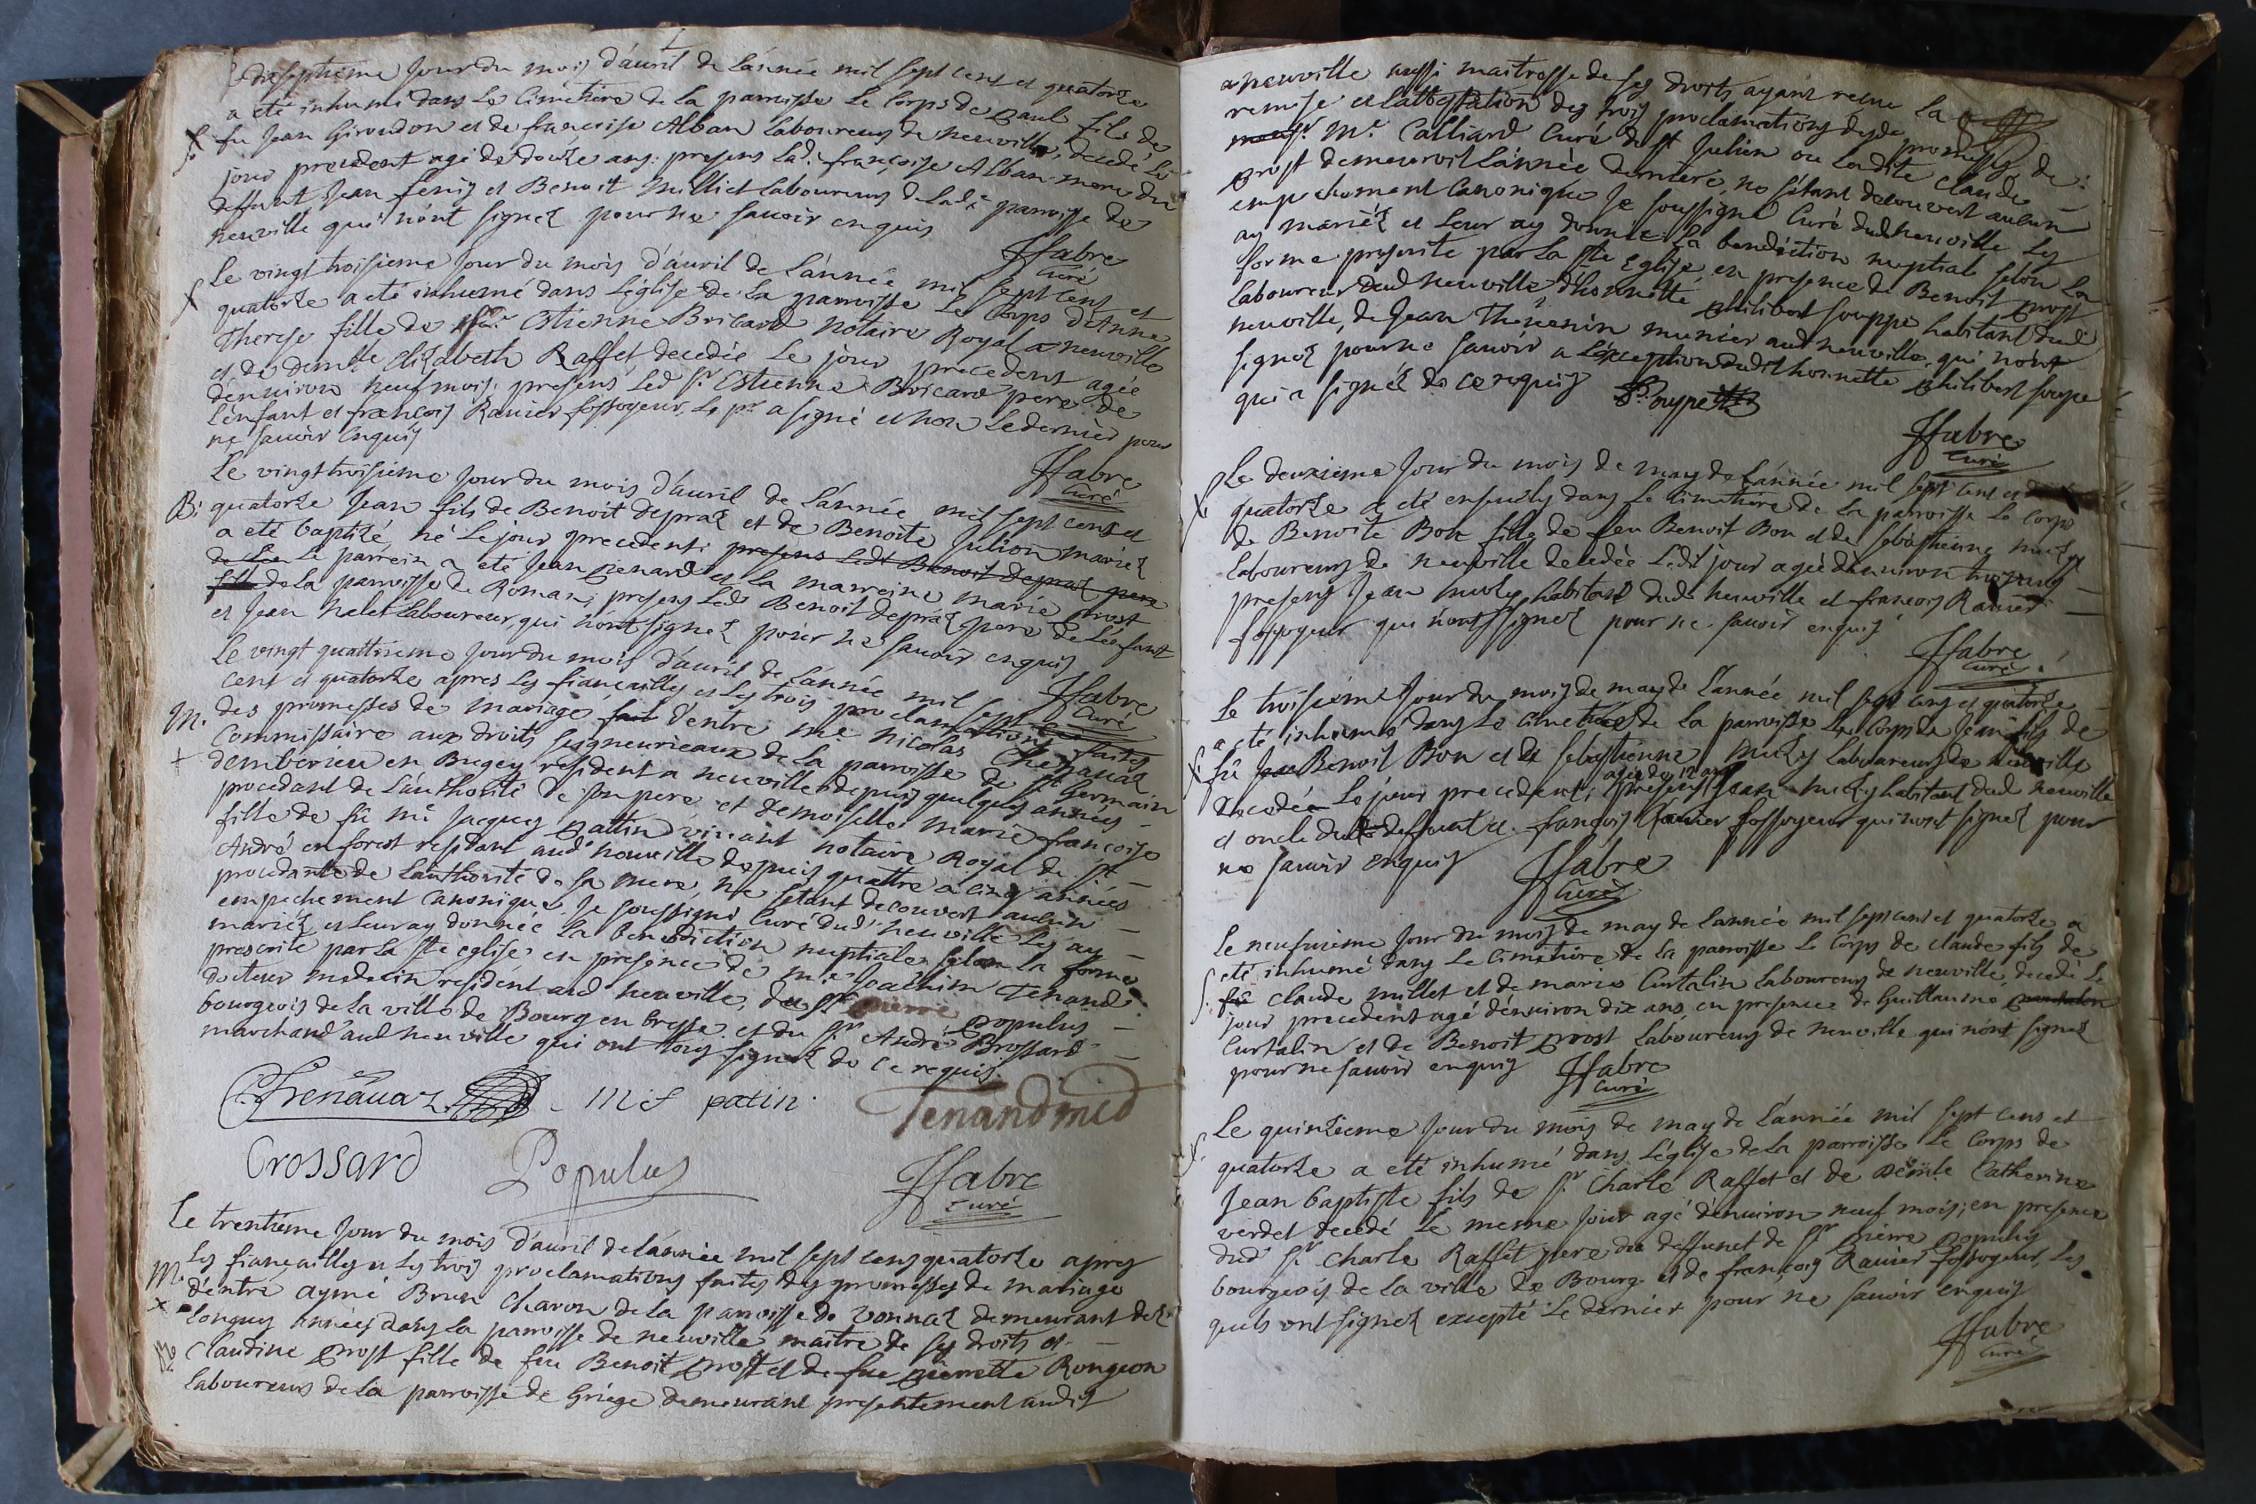 dixseptieme jour du mois d'auril de l'année mil sept cent et quatorze
a eté inhumé dans le cimetiere de la parroisse le corps de paul fils de
S. fu Jean Girondon et de francoise Alban laboureurs de neuville, decedé le
jour precedent agé de douze ans. presens lad. françoise Alban mere du
deffunt Jean fenis et Benoit Milliet laboureurs de lade parroisse de
neuville qui n'ont signez pour ne sauoir enquis
Jfabre
Curé
Le vingt troisieme jour du mois d'auril de l'année mil sept cens et
S quatorze a eté inhumé dans l'église de la parroisse le corps d'Anne
Therese fille de Estienne Bricard notaire Royal a neuville
et de demlle Elizabeth Raffet, decedée le jour precedent agée
d'enuiron neuf mois. presens led Sr. Estienne Bricard pere de
l'enfant et francois Rauier fossoyeur, le pr. a signé et non le dernier pour
ne sauoir enquis
Jfabre
Curé
Le vingt troisieme jour du mois d'auril de l'année mil sept cens et
B: quatorze Jean fils de Benoit depraz et de Benoite Julion mariez
a eté baptizé, né le jour precedent; presens ledt Benoit depraz pere
de L'en le parrein a eté Jean Renard et la marreine marie prost
fille de la parroisse de Romans, presens led. Benoit depraz pere de l'enfant
et Jean Nelet laboureur, qui n'ont signez pour ne sauoir enquis
Jfabre
Curé
Le vingt quattrieme jour du mois d'auril de l'année mil sept
cens et quatorze apres les fiançailles et les trois proclamations faites
M. des promesses de mariage fait d'entre me. nicolas Chenauaz
Commissaire aux droits seigneuriaux de la parroisse de St Germain
d'emberieu en Bugey resident a neuville depuis quelques années
procedant de l'authorité de son pere et demoiselle marie françoise
fille de fû me Jacques pattin viuant notaire Royal de St
André en forest residant aud' neuville depuis quattre a cinq années
procedante de l'authorité de sa mere, ne s'etant decouvert aucun
empechement canonique, Je soussigné Curé dud' neuville les ay
mariéz et leur ay donnée la benediction nuptiale selon la forme
prescrite par la Ste eglise en presence de me. Joachim Tenand
docteur medecin resident aud neuville, du Sr pierre populus
bourgeois de la ville de Bourg en bresse, et du Sr. André Brossard
marchand aud neuville qui ont tous signez de ce requis.
Chenauaz M f patin Tenand med
Brossard Populus Jfabre
Curé
Le trentieme jour du mois d'auril de l'année mil sept cens quatorze apres
M. les fiançailles et les trois proclamations faites des promesses de mariage
d'entre aymé Brun charon de la parroisse de vonnaz demeurant dez
longues années dans la parroisse de neuville maitre de ses droits et
Claudine prost fille de feu Benoit prost et de fue pierrette Rongeon
laboureurs de la parroisse de Griege demeurant presentement audit
a neuville aussi maitresse de ses droits ayant receu la
remise et l'attestation des trois proclamations desde promesses de
Mr. Calliard Curé de St Julien ou ladite claude
prost demeuroit l'année derniere, ne s'etant decouvert aucun
empechement canonique Je soussigné Curé dud neuville les
ay mariéz et leur ay donnée la benediction nuptiale selon la
forme prescrite par la Ste Eglise en presence de Benoit prost
laboureur dud neuville d'honnette philibert souppe habitant dud
neuville, de Jean Theuenin munier aud neuville, qui n'ont
signez pour ne sauoir a l'exception dudit honnette philibert soupe
qui a signéz de ce requis
Jfabre
Curé
Le deuxieme jour du mois de may de l'année mil sept cens et
S. quatorze a eté enseuely dans le cimetiere de la parroisse le corps
de Benoite Bon fille de feu Benoit Bon et de sebastienne
laboureurs de neuville decedée ledt jour agée d'enuiron
presens Jean habitant dud neuville et francois Rauier
fossoyeur qui n'ont signez pour ne sauoir enquis
Jfabre
Curé
Le troisieme jour du mois de may de l'année mil sept cens et quatorze
a eté inhumé dans le cimetiere de la parroisse le corps de Jean fils de
S. fû Benoit Bon et de sebastienne laboureurs de neuville
agé de 12 ans
decedée le jour precedent, presens Jean habitant dud neuville
et oncle dud deffunt et françois Rauier fossoyeur qui n'ont signez pour
ne sauoir enquis
Jfabre
Curé
Le neufuieme jour du mois de may de l'année mil sept cens et quatorze a
S. eté inhumé dans le cimetiere de la parroisse le corps de claude fils de
fû claude millet et de marie Curtalin laboureurs de neuville, decedé le
jour precedent agé d'enuiron dix ans, en presence de Guillaume
Curtalin et de Benoit prost laboureurs de neuville qui n'ont signez
pour ne sauoir enquis
Jfabre
Curé
Le quinzieme jour du mois de may de l'année mil sept cens et
S. quatorze a eté inhumé dans l'église de la parroisse le corps de
Jean baptiste fils de Sr Charle Raffet et de demle Catherine
verdet decedé le meme jour agé d'enuiron neuf mois, en presence
dud Sr. Charle Raffet pere du deffunct de Sr pierre populus
bourgeois de la ville de Bourg et de françois Rauier fossoyeur, les
quels ont signez excepté le dernier pour ne sauoir enquis
Jfabre
Curé